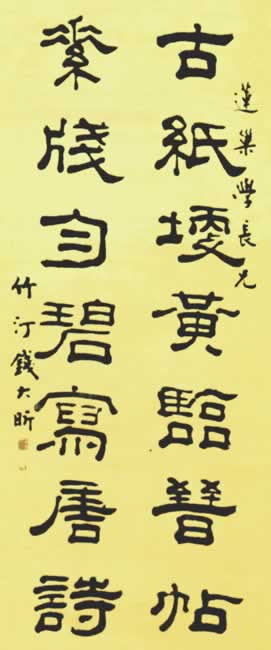 蓮巢學長兄
古紙硬黃臨晉帖
素牋勻碧寫唐詩
竹汀錢大昕